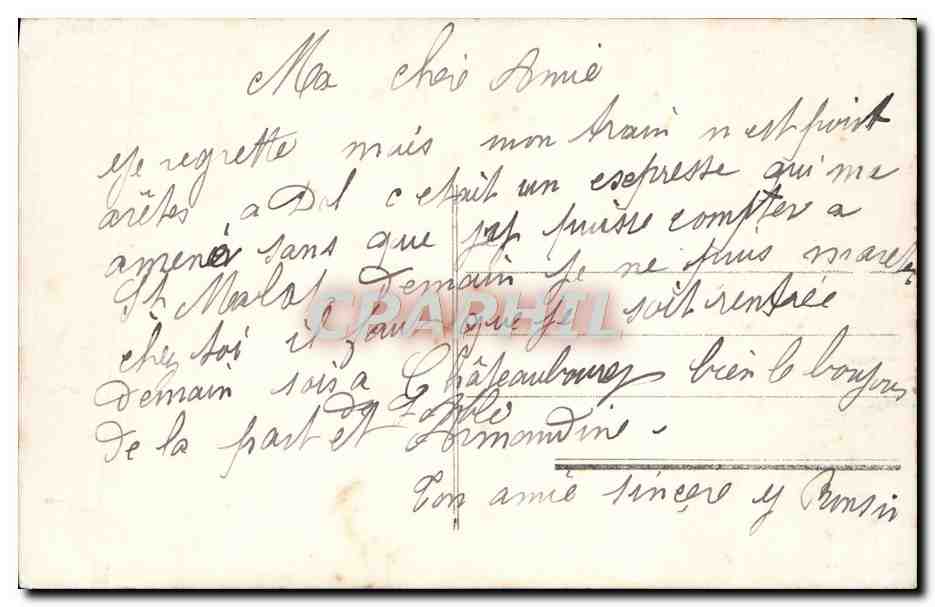 Ma cheie Amie
Je regrette mais mon train n'est point
arêtes a Dol c etait un expresse qui ma
amené sans que puisse compter a
St Malo Demain Je ne puis mareter
chez toi il faut que Je soit rentrée
CPARAMA
Demain soir a Châteaubourg bien le bonjour
De la part et Armandine.
Ton amie sincère y Ronsin